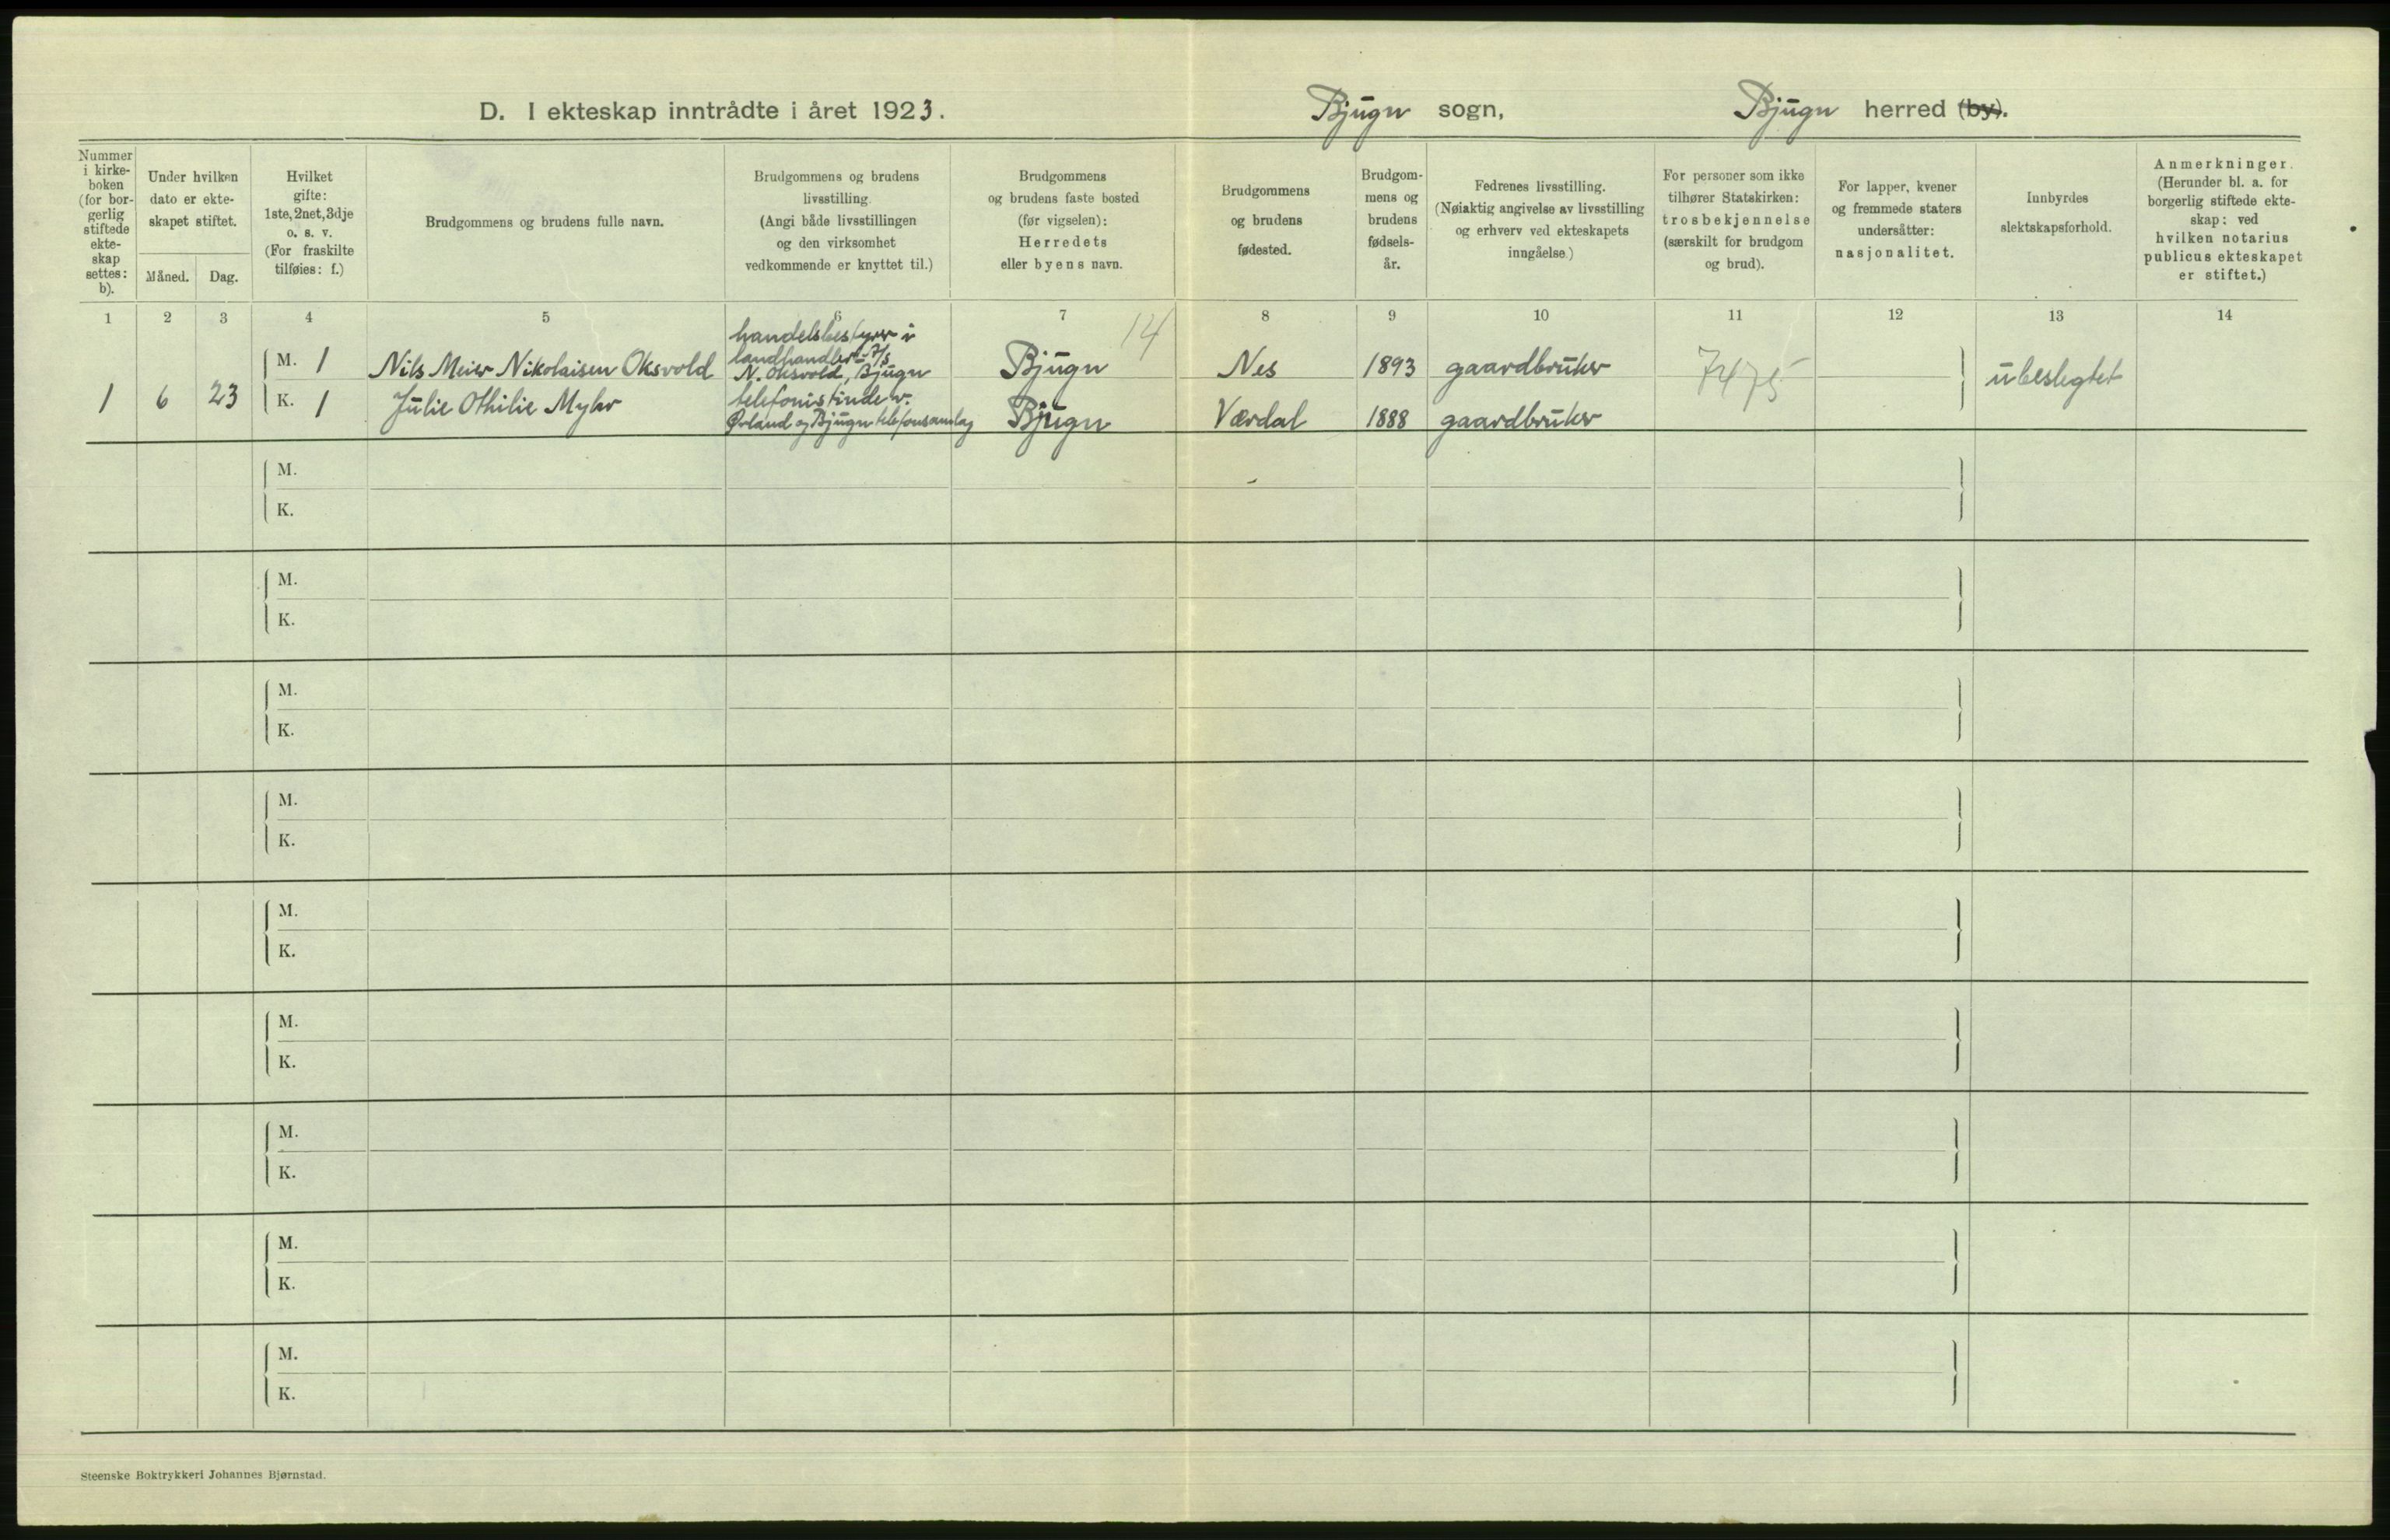 D. I ekteskap inntrådte i året 1923. Bjugn sogn, Bjugn herred (by).
Nummer i kirke-boken (for bor-gerlig stiftede ekte-skap settes: b).
Under hvilken dato er ekte-skapet stiftet.
Måned. Dag.
Hvilket gifte: 1ste, 2net, 3dje o. s. v. (For fraskilte tilføies: f.)
Brudgommens og brudens fulle navn.
Brudgommens og brudens livsstilling. (Angi både livsstillingen og den virksomhet vedkommende er knyttet til.)
Brudgommens og brudens faste bosted (før vigselen): Herredets eller byens navn.
Brudgommens og brudens fødested.
Brudgom-mens og brudens fødsels-år.
Fedrenes livsstilling. (Nøiaktig angivelse av livsstilling og erhverv ved ekteskapets inngåelse.)
For personer som ikke tilhører Statskirken: trosbekjennelse (særskilt for brudgom og brud).
For lapper, kvener og fremmede staters undersåtter: nasjonalitet.
Innbyrdes slektskapsforhold.
Anmerkninger. (Herunder bl. a. for borgerlig stiftede ekte-skap: ved hvilken notarius publicus ekteskapet er stiftet.)
1 2 3 4 5 6 7 8 9 10 11 12 13 14
14
handelsbestyrer i
landhandleri A/S
M. 1 Nils Meier Nikolaisen Oksvold N. Oksvold, Bjugn Bjugn Nes 1893 gaardbruker 7475 ubeslegtet
1 6 23 K. 1 Julie Othilie Myhr telefonistinde v.
Ørland og Bjugn telefonsamlag Bjugn Værdal 1888 gaardbruker
M.
K.
M.
K.
M.
K.
M.
K.
M.
K.
M.
K.
M.
K.
M.
K.
M.
K.
Steenske Boktrykkeri Johannes Bjørnstad.